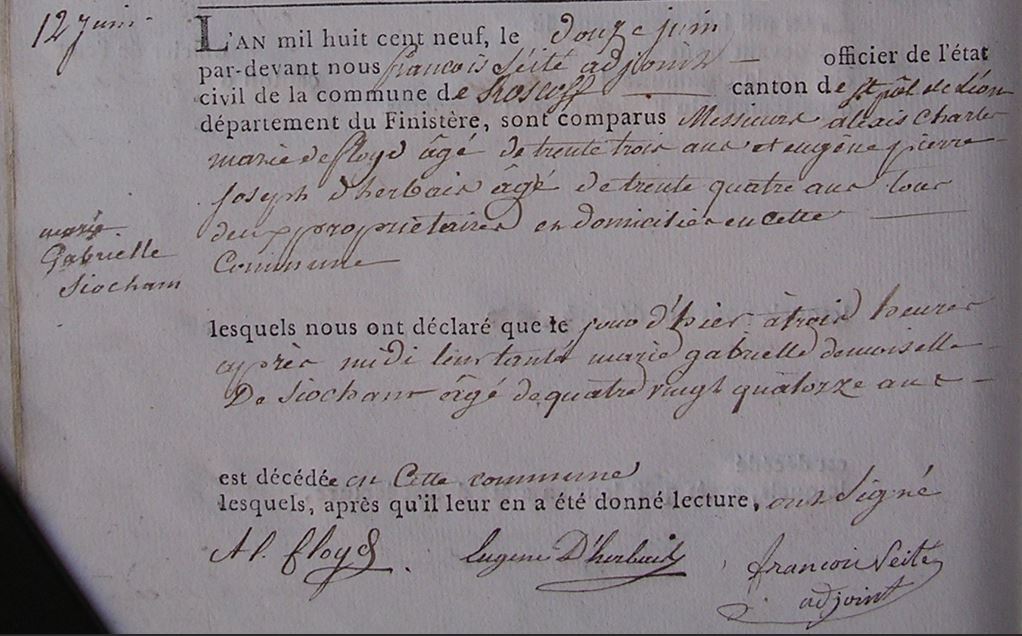 12 Juin
L'AN mil huit cent neuf, le douze juin
par-devant nous francois Seité adjoint — officier de l'état
civil de la commune de Roscoff — canton de St pol de Léon
département du Finistère, sont comparus Messieurs alexis Charles
marie de floyd âgé de trente trois ans et eugêne pierre
joseph d'herbais âgé de trente quatre ans tous
deux propriètaires et domiciliés en cette —
Commune —
marie
Gabrielle
Siocham
lesquels nous ont déclaré que le jour d'hier à trois heures
après midi leur tante marie gabrielle demoiselle —
De Siocham âgé de quatre vingt quatorze ans —
est décédée en Cette commune
lesquels, après qu'il leur en a été donné lecture, ont Signé
Al. floyd.
Eugene D'herbais
francois Seite
adjoint